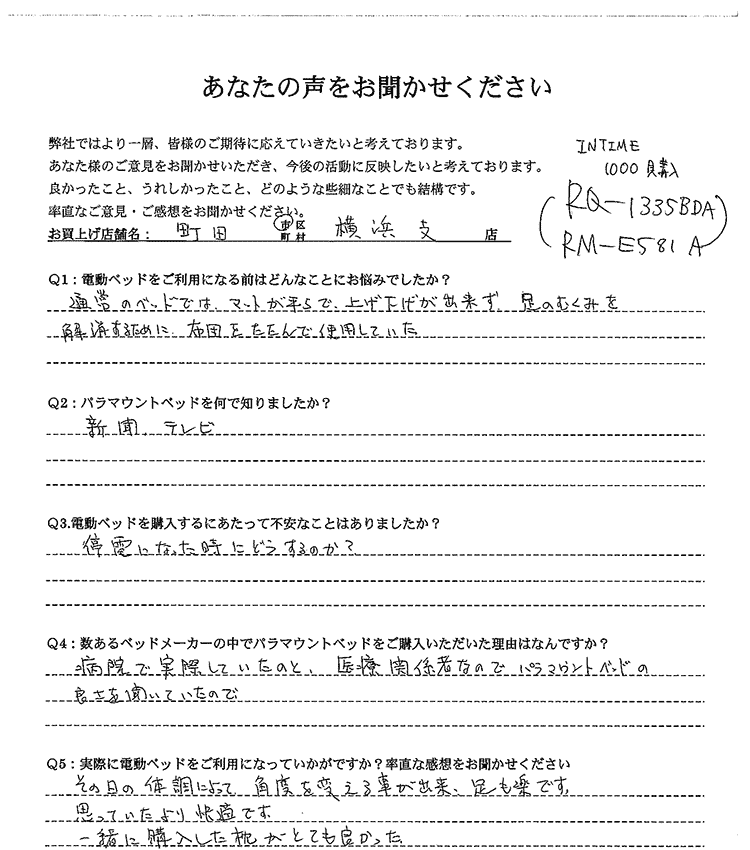 あなたの声をお聞かせください
弊社ではより一層、皆様のご期待に応えていきたいと考えております。
あなた様のご意見をお聞かせいただき、今後の活動に反映したいと考えております。
良かったこと、うれしかったこと、どのような些細なことでも結構です。
率直なご意見・ご感想をお聞かせください。
INTIME
1000 購入
(RQ-1335BDA
RM-E581A)
お買上げ店舗名: 町田 市区町村 横浜支 店
Q1:電動ベッドをご利用になる前はどんなことにお悩みでしたか?
通常のベッドでは、マットが平らで、上げ下げが出来ず、足のむくみを
解消するために、布団をたたんで使用していた
Q2:パラマウントベッドを何で知りましたか?
新聞、テレビ
Q3.電動ベッドを購入するにあたって不安なことはありましたか?
停電になった時にどうするのか?
Q4:数あるベッドメーカーの中でパラマウントベッドをご購入いただいた理由はなんですか?
病院で実際していたのと、医療関係者なのでパラマウントベッドの
良さを聞いていたので
Q5:実際に電動ベッドをご利用になっていかがですか?率直な感想をお聞かせください
その日の体調によって角度を変える事が出来、足も楽です。
思っていたより快適です。
一緒に購入した枕がとても良かった